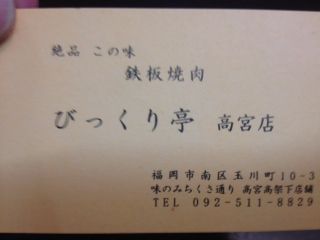 絶品 この味
鉄板焼肉
びっくり亭 高宮店
福岡市南区玉川町10-3
味のみちくさ通り 高宮高架下店舗
TEL 092-511-8829